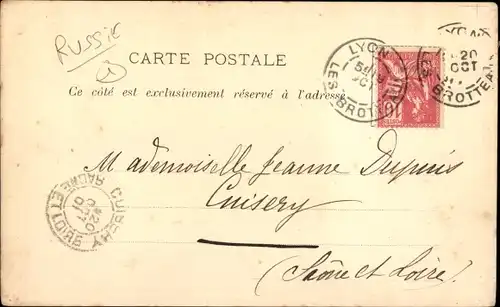 RUSSIE
CARTE POSTALE
Ce côté est exclusivement réservé à l'adresse
LYON
LES BROTTEAUX
20
OCT
LES BROTTEA
10
Mademoiselle Jeanne Dupuis
Cuisery
(Saône et Loire)
CUISERY
20
OCT
01
SAONE ET LOIRE